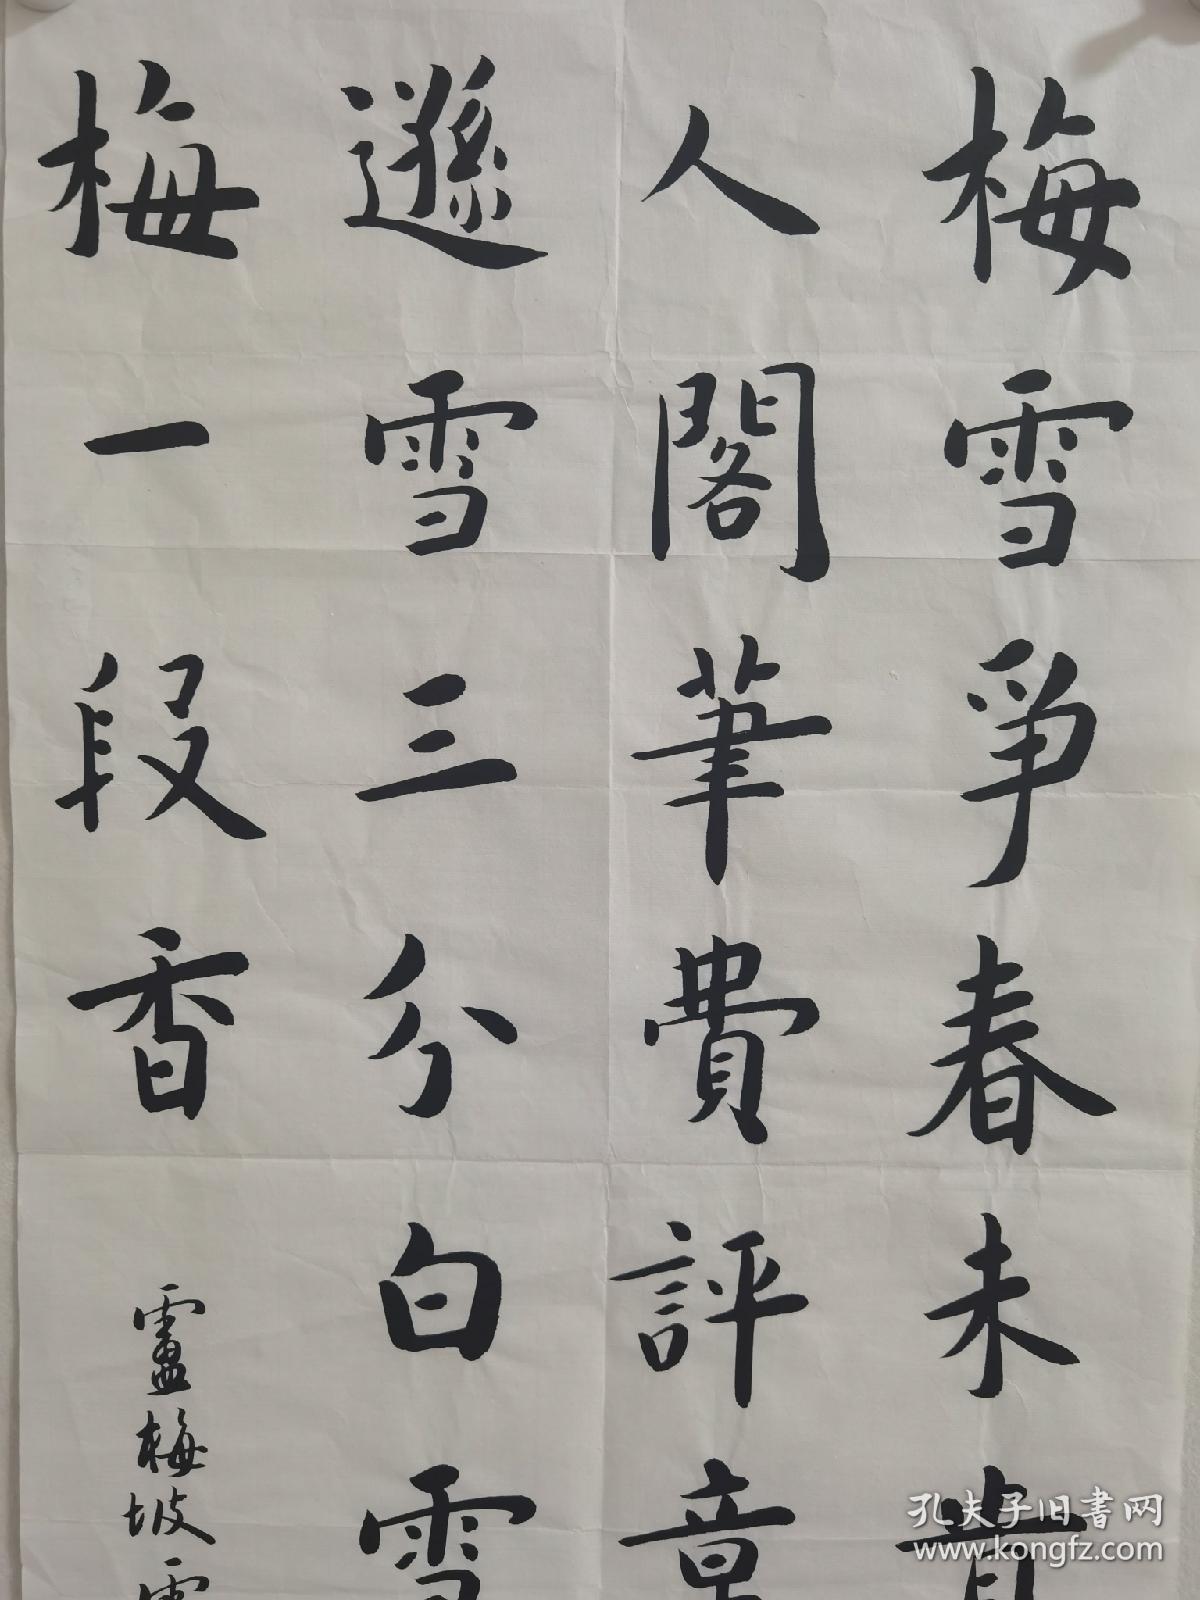 梅雪爭春未肯
人閣筆費評章
遜雪三分白雪
梅一段香
盧梅坡雪
孔夫子旧書网
www.kongfz.com